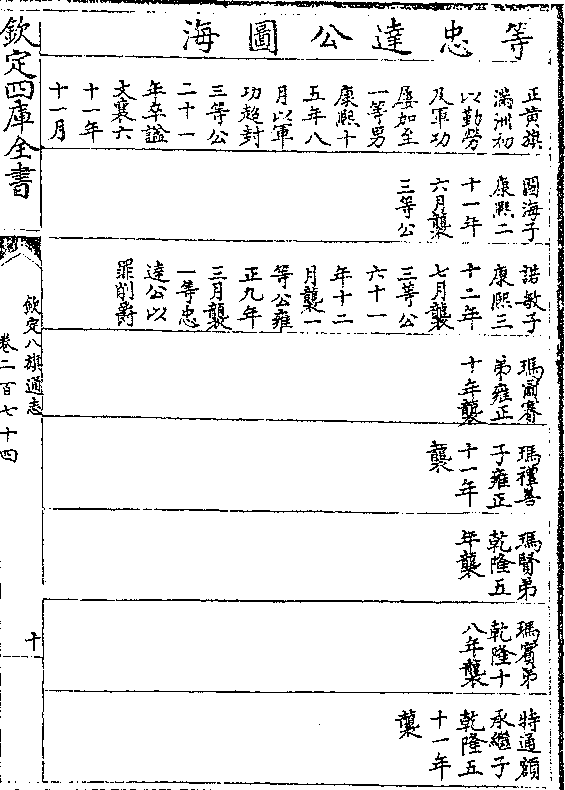 等忠達公圖海
正黃旗
滿洲初
以勤勞
及軍功
屡加至
一等男
康熙十
五年八
月以軍
功超封
三等公
二十一
年卒諡
文襄六
十一年
十一月
圖海子
康熙二
十一年
六月襲
三等公
諾敏子
康熙三
十二年
七月襲
三等公
六十一
年十二
月襲一
等公雍
正九年
三月襲
一等忠
達公以
罪削爵
瑪爾賽
弟雍正
十年襲
瑪禮善
子雍正
十一年
襲
瑪賢弟
乾隆五
年襲
瑪賓弟
乾隆十
八年襲
特通額
承繼子
乾隆五
十一年
襲
欽定四庫全書
欽定八旗通志
卷二百七十四
十